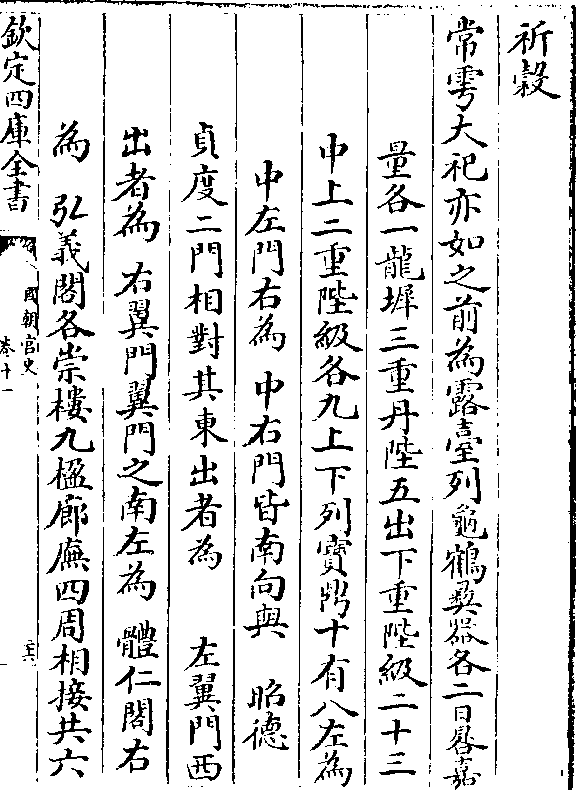 祈穀
常雩大祀亦如之前為露臺列龜鶴彝器各二日晷嘉
量各一龍墀三重丹陛五出下重陛級二十三
中上二重陛級各九上下列寶鼎十有八左為
中左門右為 中右門皆南向與 昭德
貞度二門相對其東出者為 左翼門西
出者為 右翼門翼門之南左為 體仁閣右
為 弘義閣各崇樓九楹廊廡四周相接共六
欽定四庫全書
國朝宮史
卷十一